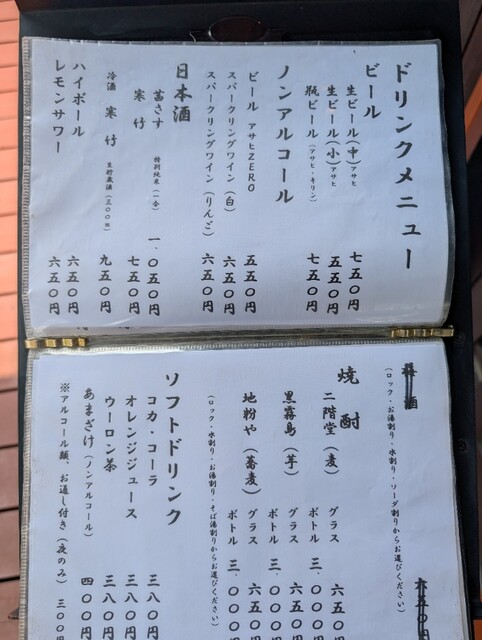 ドリンクメニュー
ビール
生ビール(中)アサヒ 七五〇円
生ビール(小)アサヒ 五五〇円
瓶ビール(アサヒ・キリン) 七五〇円
ノンアルコール
ビール アサヒZERO 五五〇円
スパークリングワイン(白) 六五〇円
スパークリングワイン(りんご) 六五〇円
日本酒
茜さす 特別純米(一合) 一、〇五〇円
寒竹 七五〇円
冷酒 寒竹 生貯蔵酒(三〇〇㎖) 九五〇円
ハイボール 六五〇円
レモンサワー 六五〇円
(ロック・お湯割り・水割り・ソーダ割りからお選びください)
焼酎
二階堂(麦) グラス 六五〇円
ボトル 三、〇〇〇円
黒霧島(芋) グラス 六五〇円
ボトル 三、〇〇〇円
地粉や(蕎麦) グラス 六五〇円
ボトル 三、〇〇〇円
(ロック・水割り・お湯割り・そば湯割りからお選びください)
ソフトドリンク
コカ・コーラ 三八〇円
オレンジジュース 三八〇円
ウーロン茶 三八〇円
あまざけ(ノンアルコール) 四〇〇円
※アルコール類、お通し付き(夜のみ) 三〇〇円